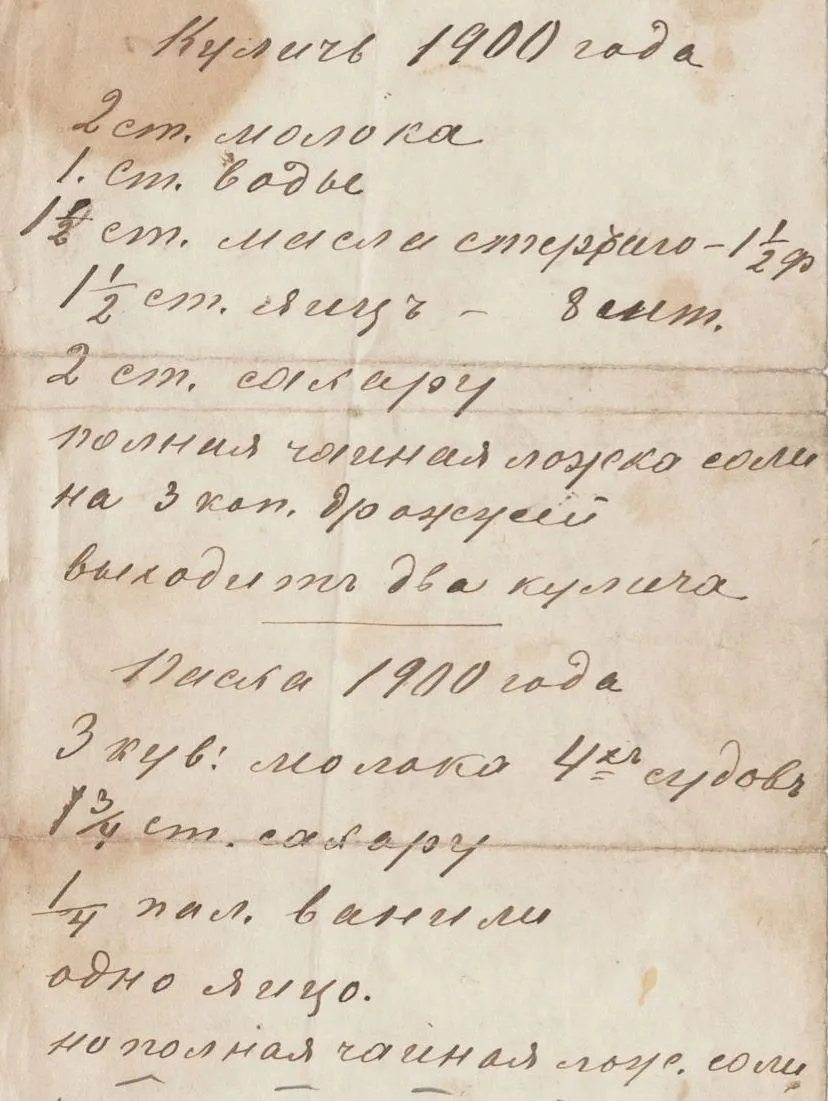 Куличъ 1900 года
2 ст. молока
1. ст. воды
1 1/2 ст. масла стертаго – 1 1/2 ф
1 1/2 ст. яицъ – 8 шт.
2 ст. сахару
полная чайная ложка соли
на 3 коп. дрожжей
выходитъ два кулича
Пасха 1900 года
3 кув: молока 4хъ судовъ
1 3/4 ст. сахару
1/4 пал. ванили
одно яицо.
но полная чайная лож. соли